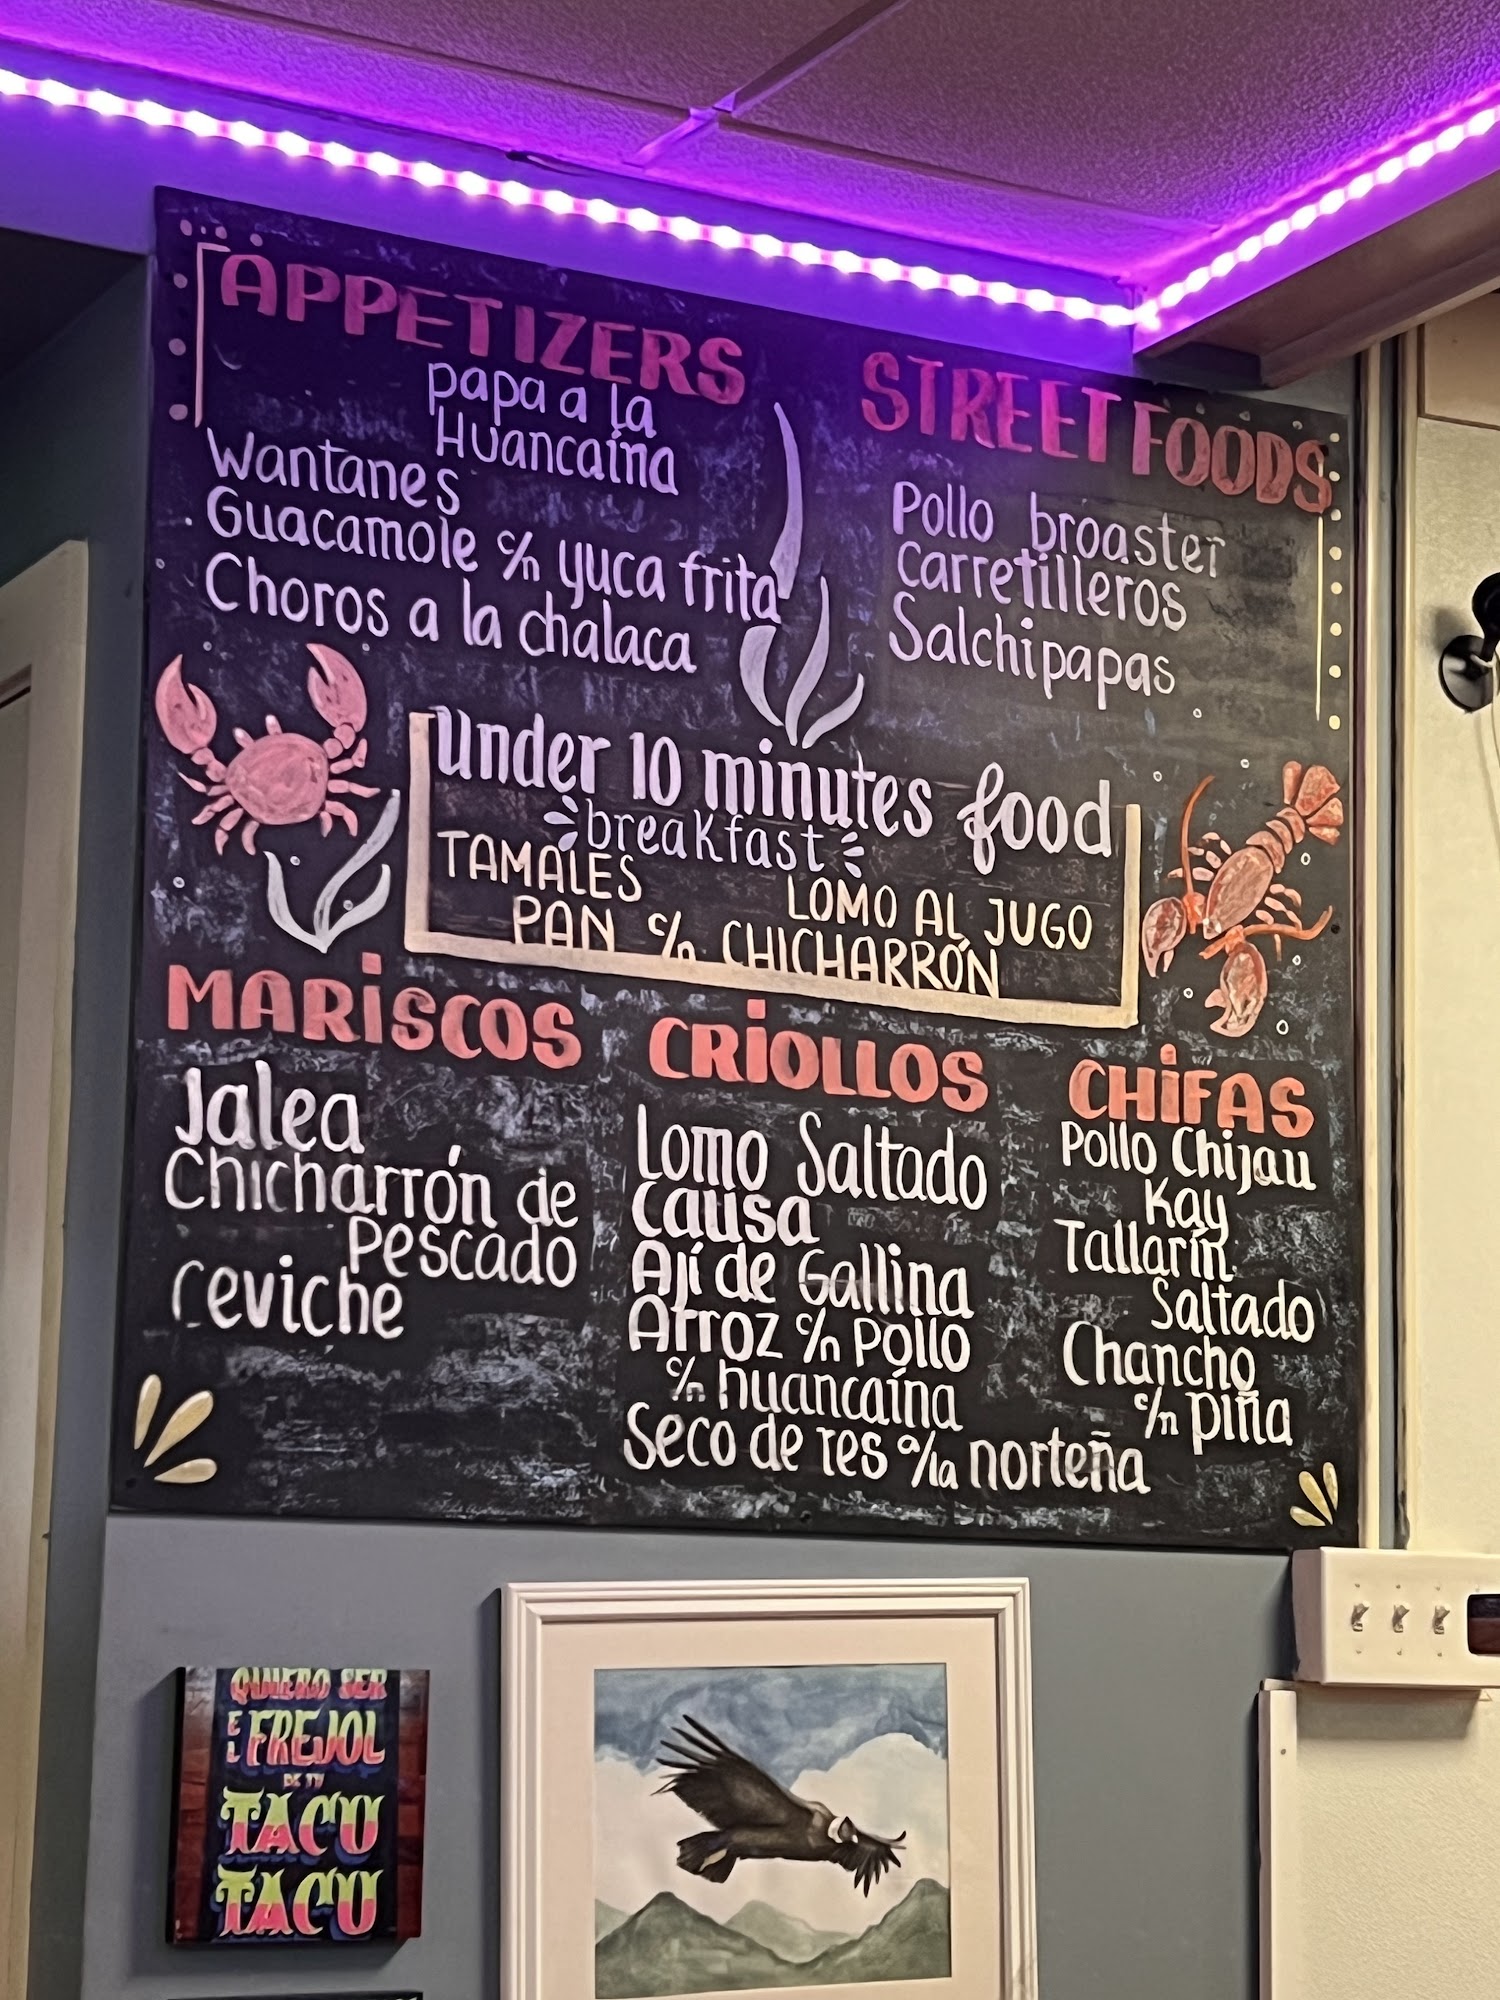 APPETIZERS
papa a la
Huancaína
Wantanes
Guacamole c/n yuca frita
Choros a la chalaca
STREET FOODS
Pollo broaster
Carretilleros
Salchipapas
Under 10 minutes food
breakfast
TAMALES
LOMO AL JUGO
PAN c/n CHICHARRÓN
MARISCOS
Jalea
Chicharrón de
Pescado
Ceviche
CRIOLLOS
Lomo Saltado
Causa
Ají de Gallina
Arroz c/n Pollo
c/n huancaína
Seco de res a/la norteña
CHIFAS
Pollo Chijau
Kay
Tallarín
Saltado
Chancho
c/n piña
QUIERO SER
EL FREJOL
DE TU
TACU
TACU